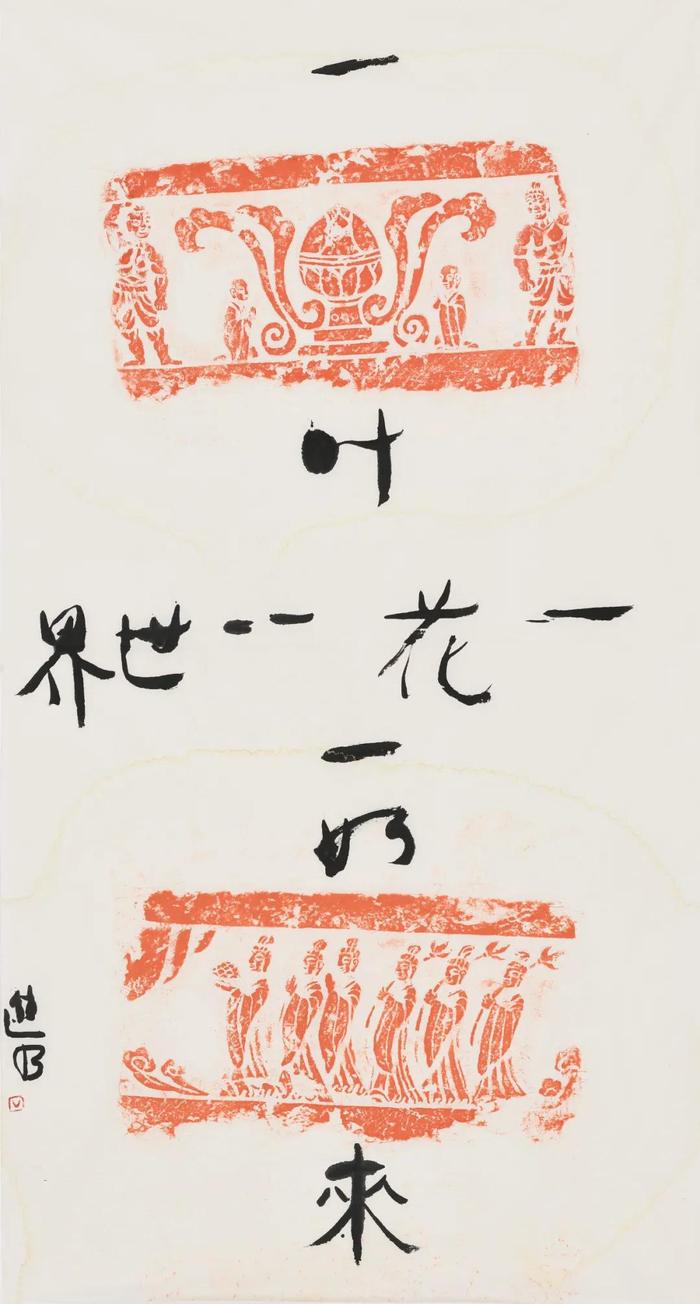 一
叶
一花一世界
一
如
來